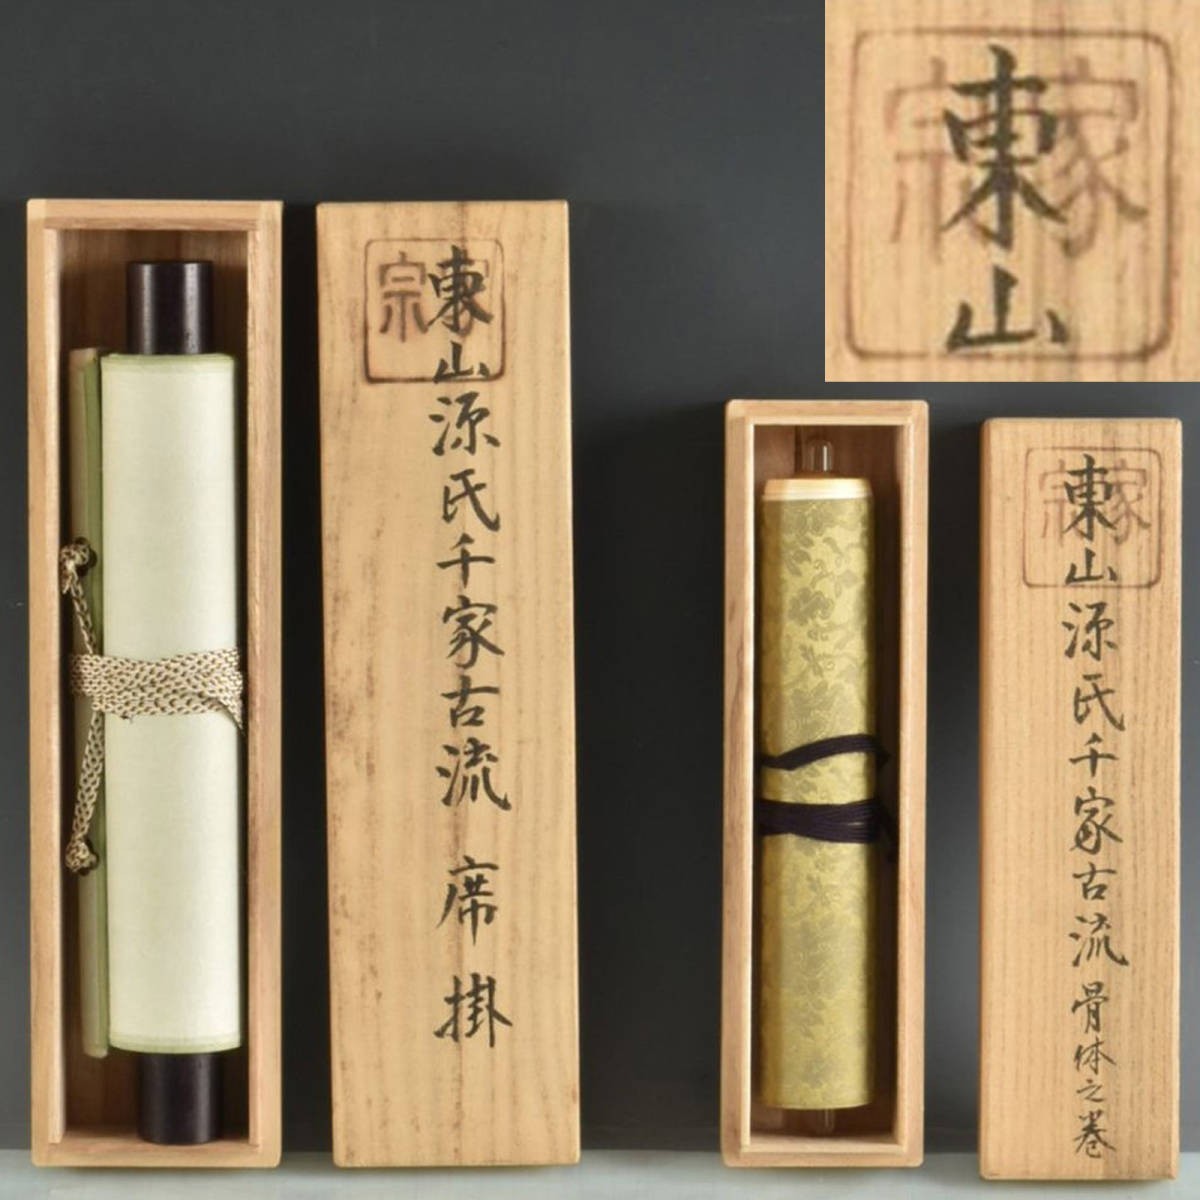 東山源氏千家古流 席掛
家宗
東山
家宗
東山源氏千家古流 骨体之巻
家宗